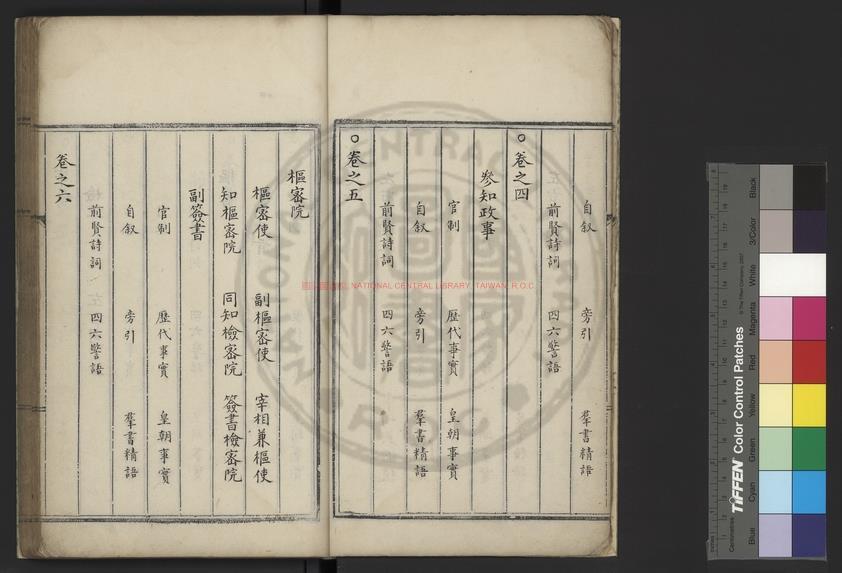 自叙 旁引 羣書精語
前賢詩詞 四六警語
○卷之四
參知政事
官制 歷代事實 皇朝事實
自叙 旁引 羣書精語
前賢詩詞 四六警語
○卷之五
樞密院
樞密使 副樞密使 宰相兼樞使
知樞密院 同知檢密院 簽書檢密院
副簽書
官制 歷代事實 皇朝事實
自叙 旁引 羣書精語
前賢詩詞 四六警語
卷之六
NATIONAL CENTRAL LIBRARY, TAIWAN, R.O.C
TIFFEN Color Control Patches
© The Tiffen Company, 2007
Centimetres
Blue
Cyan
Green
Yellow
Red
Magenta
White
3/Color
Black